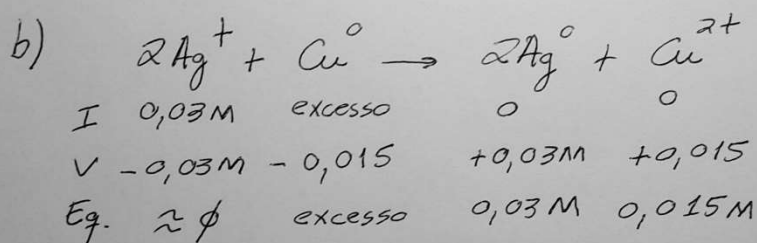 b) 2Ag⁺ + Cu⁰ → 2Ag⁰ + Cu²⁺
I 0,03M excesso 0 0
V -0,03M -0,015 +0,03M +0,015
Eq. ≈ϕ excesso 0,03M 0,015M